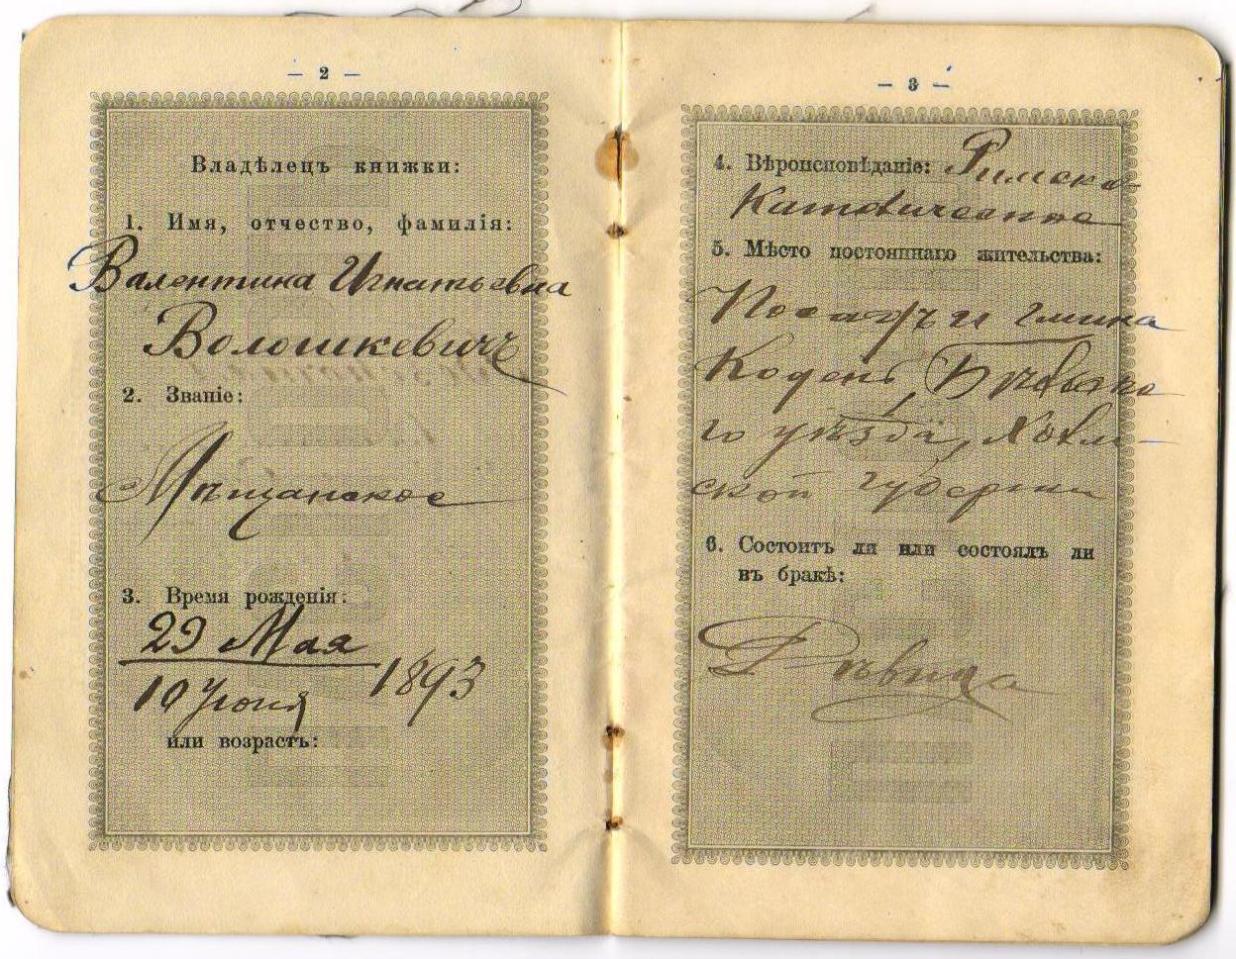 — 2 —
Владѣлецъ книжки:
1. Имя, отчество, фамилія:
Валентина Игнатьевна
Волошкевичъ
2. Званіе:
Мѣщанское
3. Время рожденія:
29 Мая
10 Іюня 1893
или возрастъ:
— 3 —
4. Вѣроисповѣданіе: Римско-
Католическое
5. Мѣсто постояннаго жительства:
Посадъ и гмина
Кодень Бѣльска
го уѣзда, Холм-
ской губерніи
6. Состоитъ ли или состоялъ ли
въ бракѣ:
Дѣвица